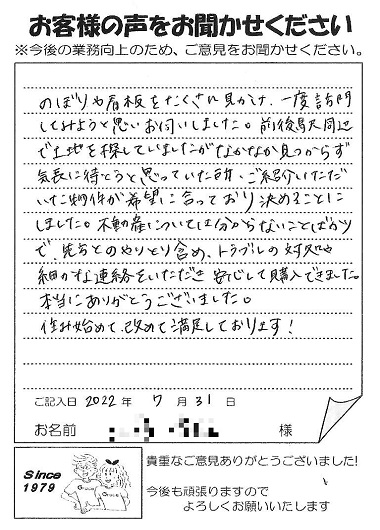 お客様の声をお聞かせください
※今後の業務向上のため、ご意見をお聞かせください。
のぼりや看板をたくさん見かけ、一度訪問
してみようと思いお伺いしました。前後駅周辺
で土地を探していましたがなかなか見つからず
気長に待とうと思っていた所、ご紹介いただ
いた物件が希望に合っており決めることに
しました。不動産については分からないことばかり
で、先方とのやりとり含め、トラブルの対処や
細かな連絡をいただき安心して購入できました。
本当にありがとうございました。
住み始めて、改めて満足しております!
ご記入日 2022 年 7 月 31 日
お名前 様
Since
1979
貴重なご意見ありがとうございました!
今後も頑張りますので
よろしくお願いいたします